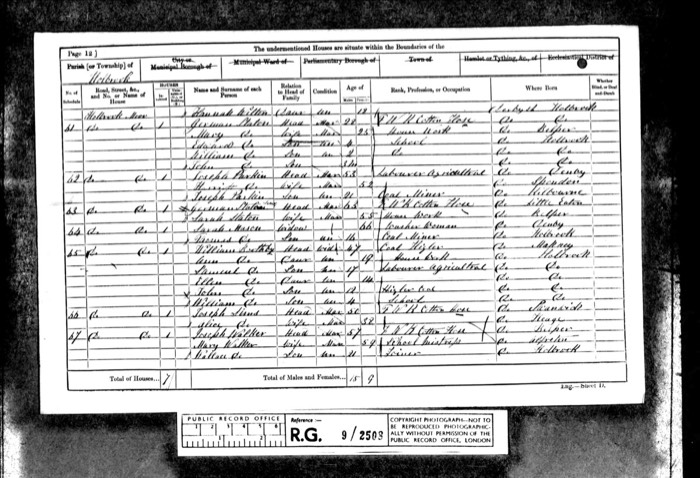 Page 12 ]
The undermentioned Houses are situate within the Boundaries of the
Parish (or Township) of
City or
Municipal Borough of
Municipal Ward of
Parliamentary Borough of
Town of
Hamlet or Tything, &c., of
Ecclesiastical District of
Holbrook
No. of Schedule
Road, Street, &c., and No. or Name of House
HOUSES
Name and Surname of each Person
Relation to Head of Family
Condition
Age of
Rank, Profession, or Occupation
Where Born
Whether Blind, or Deaf and Dumb
Holbrook Moor Hannah Daur Un 18 Derbysh Holbrook
61 Do Do 1 Head Mar 28 F W K Cotton Hose Do Do
Mary Do Wife Mar 25 House Work Do Belper
Edward Do Son Un 4 School Do Holbrook
William Do Son Un 2 Do Do Do
John Do Son Do Do
62 Do Do 1 Joseph Parkin Head Mar 53 Labourer Agricultural Do Denby
Harriett Do Wife Mar 52 Do Spondon
Joseph Parkin Son Un 21 Coal Miner Do Kilbourne
63 Do Do 1 Head Mar 63 F W K Cotton Hose Do Little Eaton
Sarah Wife Mar 55 House Work Do Belper
64 Do Do 1 Sarah Mason Widow 66 Washer Woman Do Denby
Do Son Un 16 Coal Miner Do Holbrook
65 Do Do 1 William Head Wid 47 Coal Higler Do Makney
Ann Do Daur Un 19 House Work Do Holbrook
Samuel Do Son Un 17 Labourer Agricultral Do Do
Ellen Do Daur Un 14 Do Do
John Do Son Un 9 Higler Coal Do Do
William Do Son Un 4 School Do Do
66 Do Do 1 Joseph Head Mar F W K Cotton Hose Do
Do Wife Mar 52 Do Heage
67 Do Do 1 Joseph Walker Head Mar 57 F W K Cotton Hose Do Belper
Mary Walker Wife Mar 59 School Mistress Do
Do Son Un 21 Do Holbrook
Total of Houses... 7
Total of Males and Females... 15 9
Eng.—Sheet D.
PUBLIC RECORD OFFICE
1 2 3 4 5 6
1 2
Reference :-
R.G. 9/2503
COPYRIGHT PHOTOGRAPH—NOT TO
BE REPRODUCED PHOTOGRAPHIC-
ALLY WITHOUT PERMISSION OF THE
PUBLIC RECORD OFFICE, LONDON